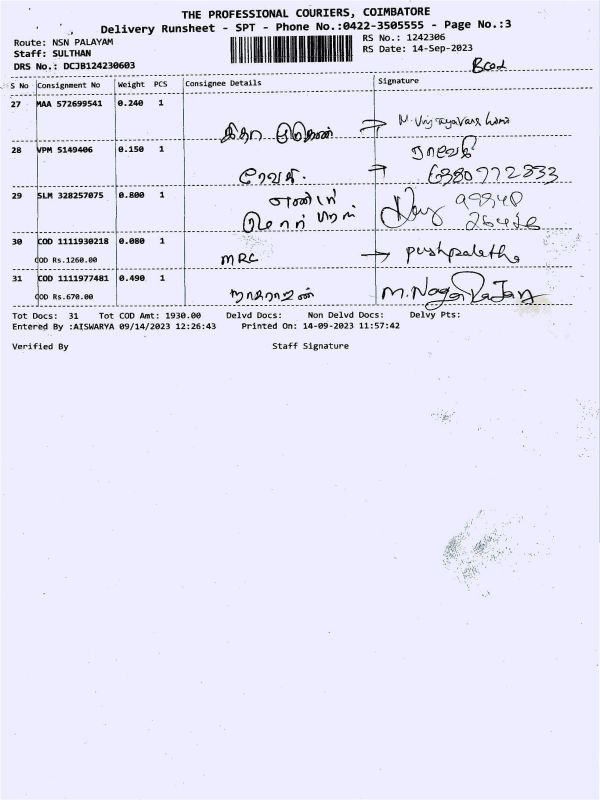 THE PROFESSIONAL COURIERS, COIMBATORE
Delivery Runsheet - SPT - Phone No.:0422-3505555 - Page No.:3
Route: NSN PALAYAM
RS No.: 1242306
Staff: SULTHAN
RS Date: 14-Sep-2023
DRS No.: DCJB124230603
S No Consignment No Weight PCS Consignee Details Signature
27 MAA 572699541 0.240 1
28 VPM 5149406 0.150 1
ரேவதி. → 6380772833
29 SLM 328257075 0.800 1
99840
26428
30 COD 1111930218 0.080 1
COD Rs.1260.00 MRC → pushpalatha
31 COD 1111977481 0.490 1
COD Rs.670.00 நாகராஜன் M.NagaRaJan
Tot Docs: 31 Tot COD Amt: 1930.00 Delvd Docs: Non Delvd Docs: Delvy Pts:
Entered By :AISWARYA 09/14/2023 12:26:43 Printed On: 14-09-2023 11:57:42
Verified By Staff Signature